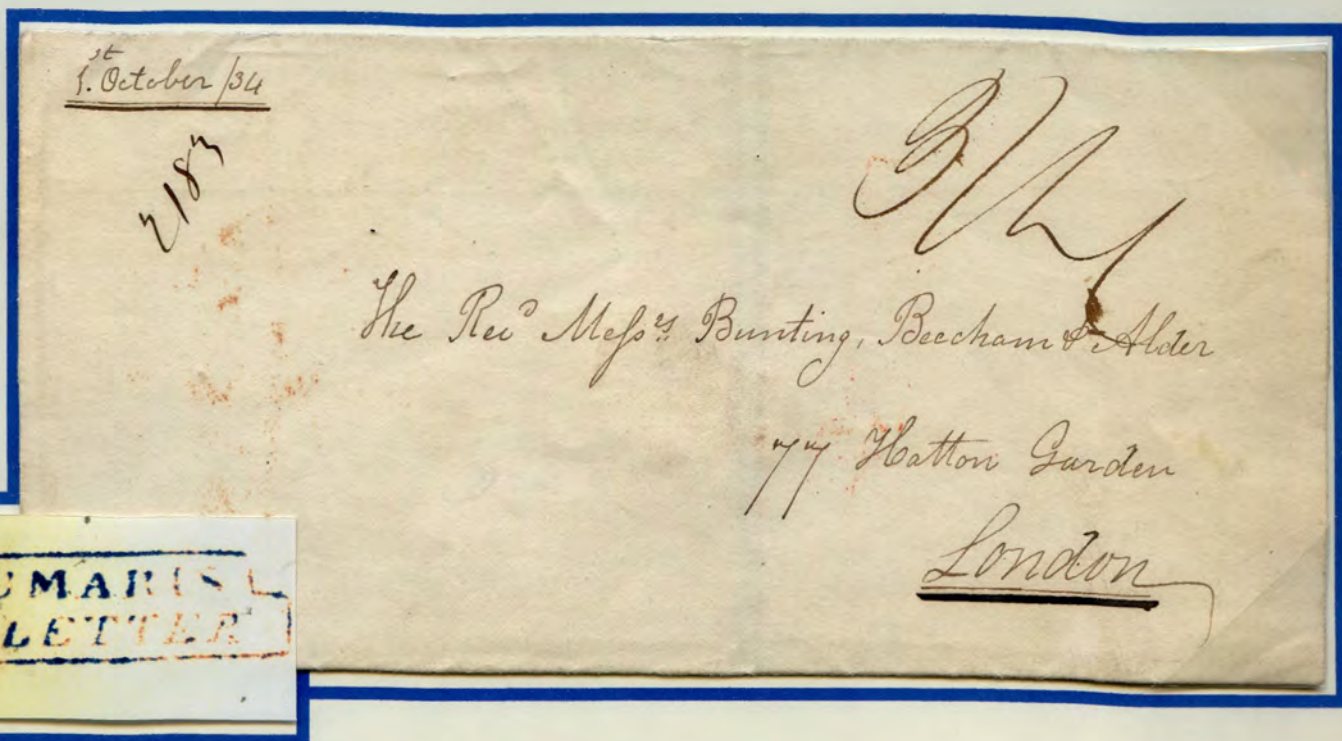 1.st October /34
2183
The Revd Messrs Bunting, Beecham & Alder
77 Hatton Garden
London
UMARIS
LETTER